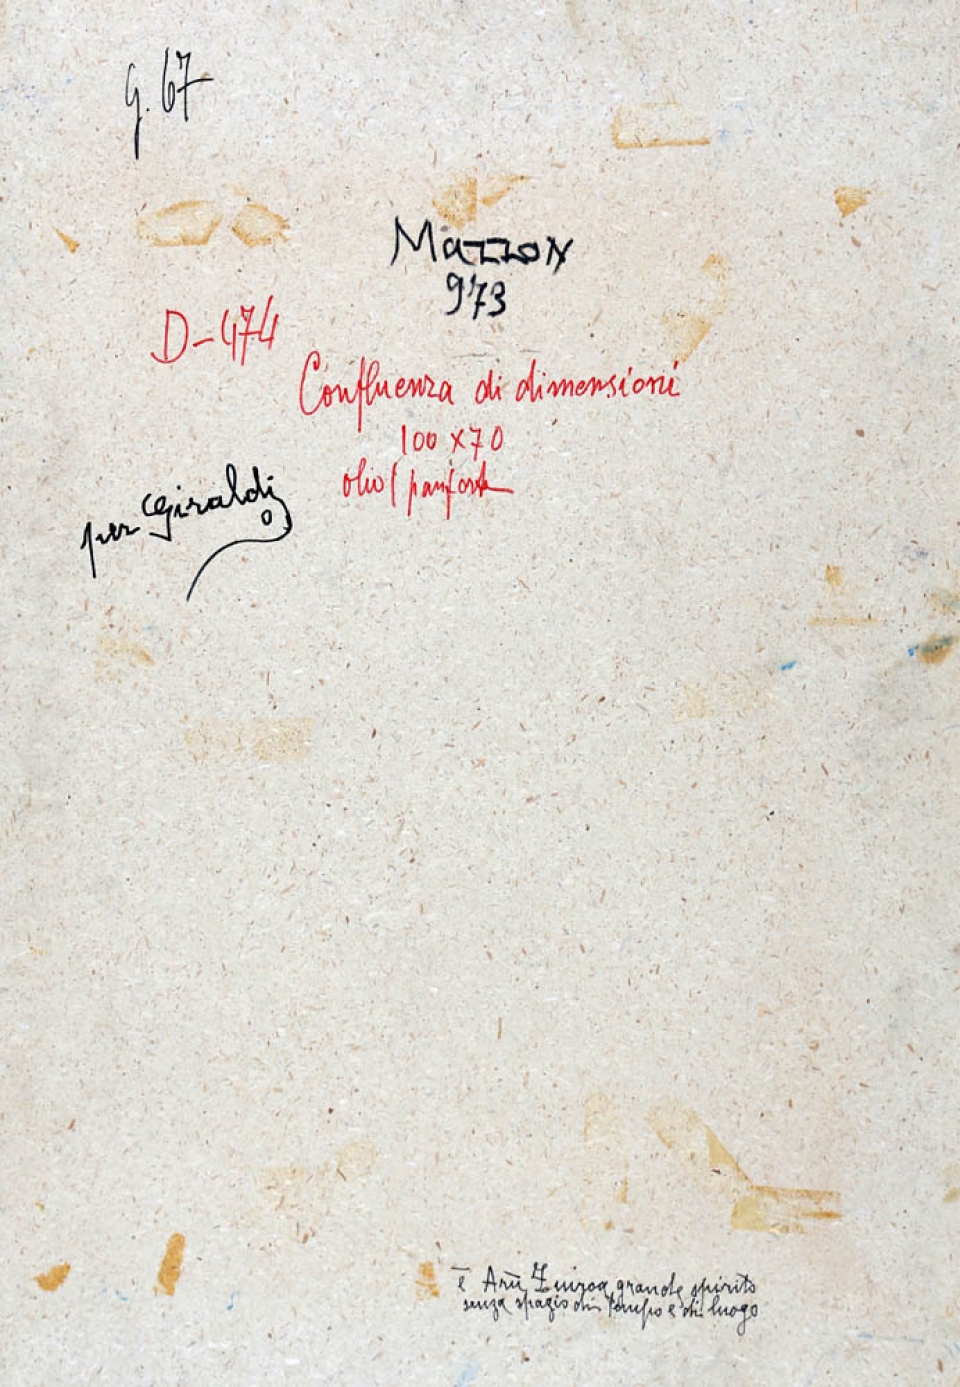 G. 67
Mazzon
973
D-474
Confluenza di dimensioni
100 x 70
olio/panforte
per Giraldi
è Arù Zuiroa grande spirito
senza spazio di tempo e di luogo